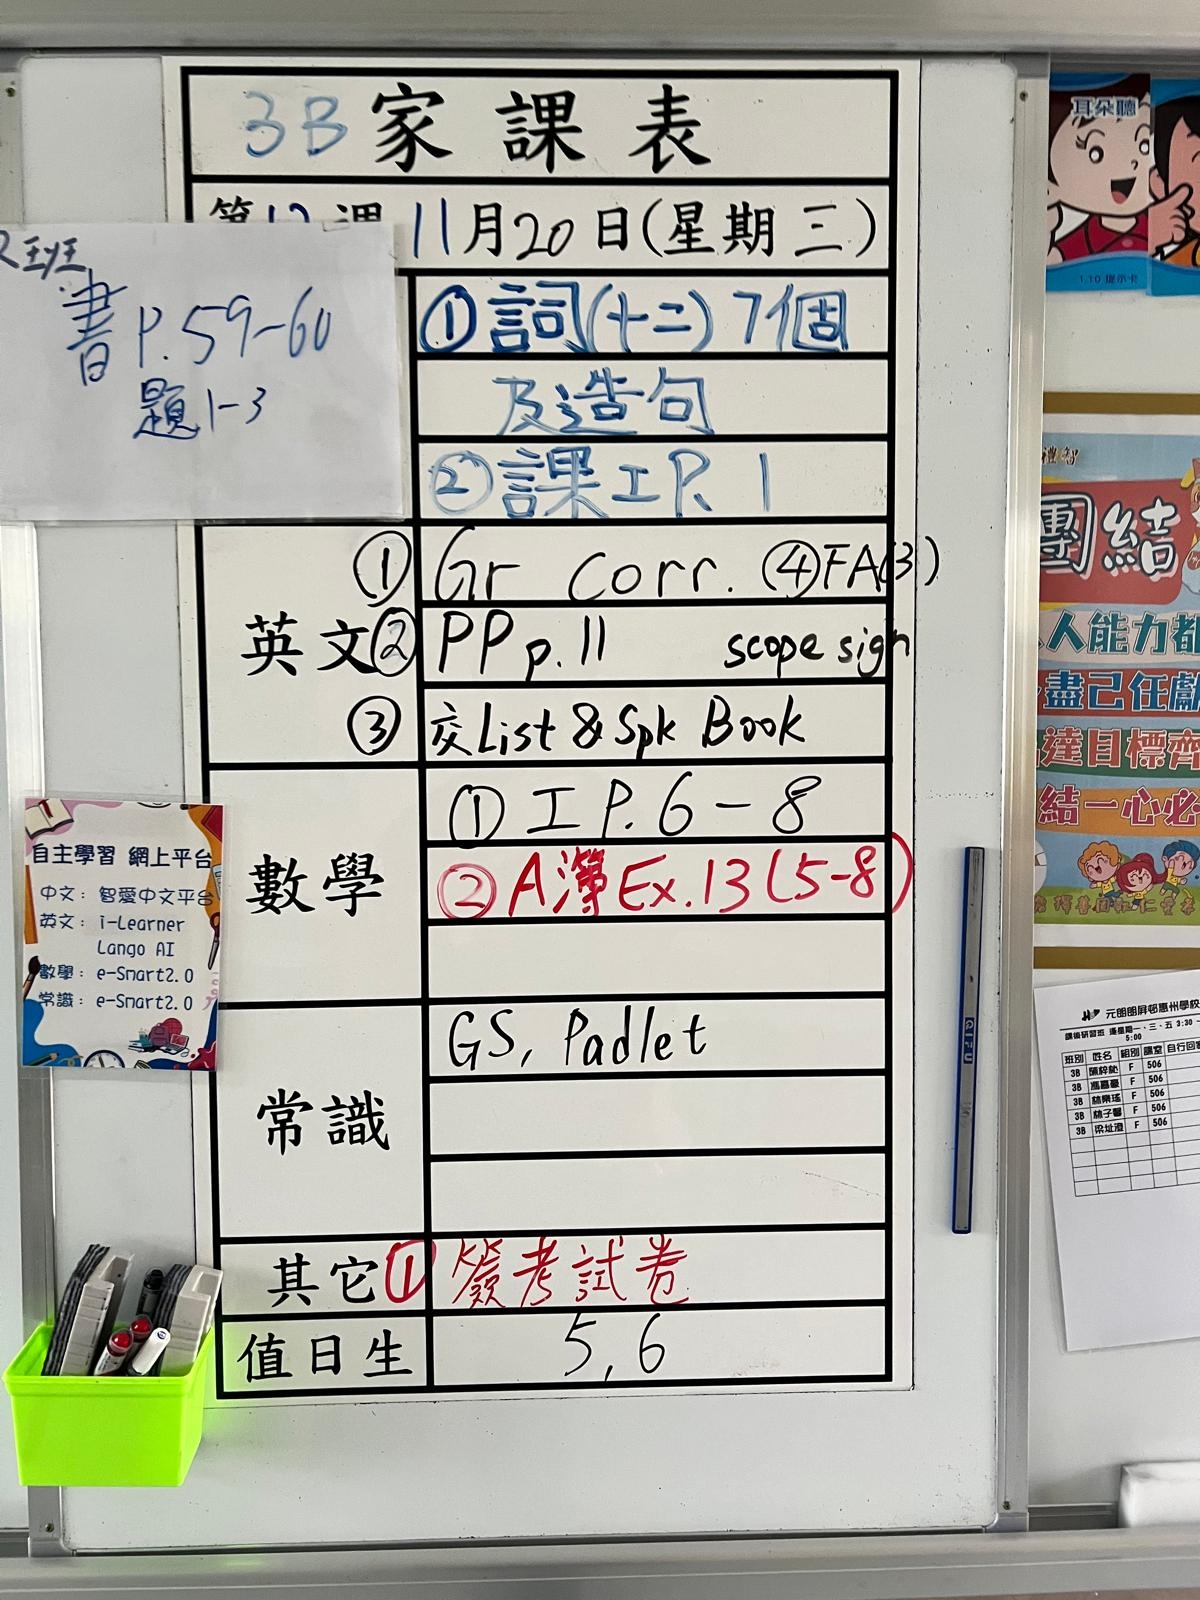 3B 家課表
第12週 11月20日(星期三)
班
書 P.59-60
題1-3
① 詞(十二) 7個
及造句
② 課工P.1
英文
① Gr Corr. ④FA(3)
② PP p.11 scope sign
③ 交List & Spk Book
數學
① 工P.6-8
② A簿Ex.13(5-8)
常識
GS, Padlet
其它
① 簽考試卷
值日生
5, 6
自主學習 網上平台
中文: 智愛中文平台
英文: i-Learner
Lango AI
數學: e-Smart2.0
常識: e-Smart2.0
耳朵聽
1.10 提示卡
禮智
團結
人人能力都
盡己任獻
達目標齊
結一心必
元朗朗屏邨惠州學校
課後研習班 逢星期一、三、五 3:30 -
5:00
班別 姓名 組別 課室 自行回家
3B F 506
3B F 506
3B 林樂瑤 F 506
3B 林子馨 F 506
3B 梁址澄 F 506